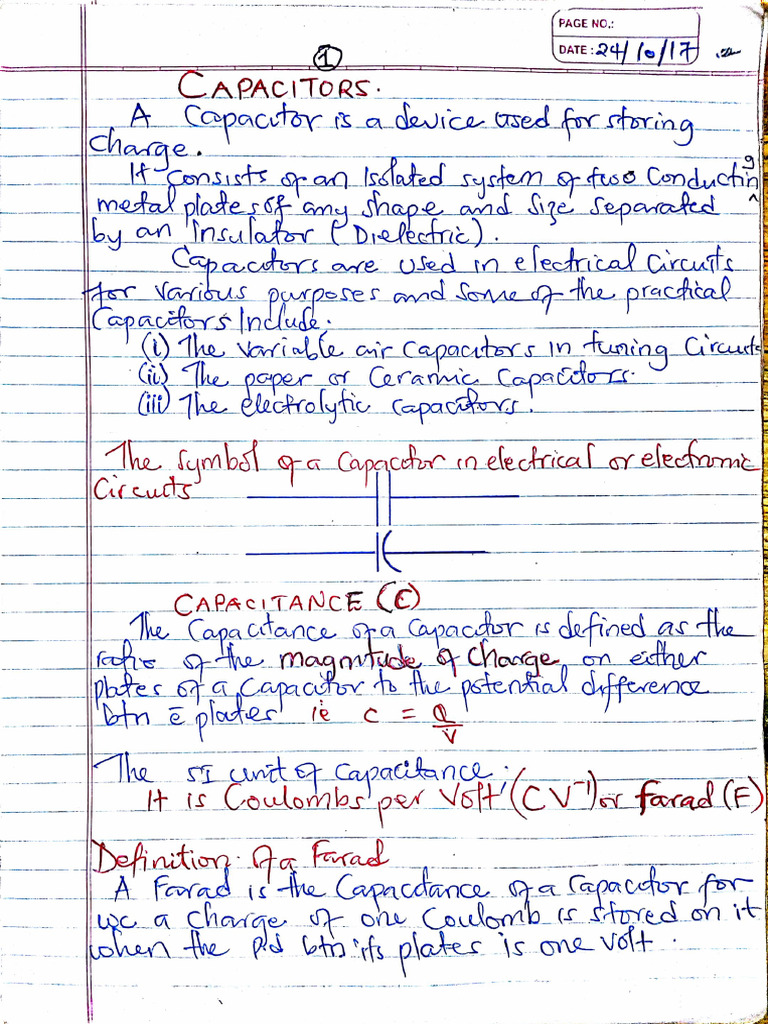 PAGE NO.:
DATE: 24/10/17
1
CAPACITORS.
A Capacitor is a device used for storing
charge.
It consists of an Isolated system of two Conducting
metal plates of any shape and size separated
by an Insulator (Dielectric).
Capacitors are used in electrical circuits
for various purposes and some of the practical
Capacitors Include:
(i) The variable air capacitors in tuning circuits
(ii) The paper or Ceramic Capacitors.
(iii) The electrolytic capacitors.
The symbol of a Capacitor in electrical or electronic
Circuits
CAPACITANCE (C)
The Capacitance of a Capacitor is defined as the
ratio of the magnitude of charge on either
plates of a Capacitor to the potential difference
btn ē plates ie C = Q/V
The SI unit of Capacitance:
It is Coulombs per Volt (CV⁻¹) or farad (F)
Definition of a Farad
A Farad is the Capacitance of a Capacitor for
wc a charge of one Coulomb is stored on it
when the pd btn its plates is one volt.